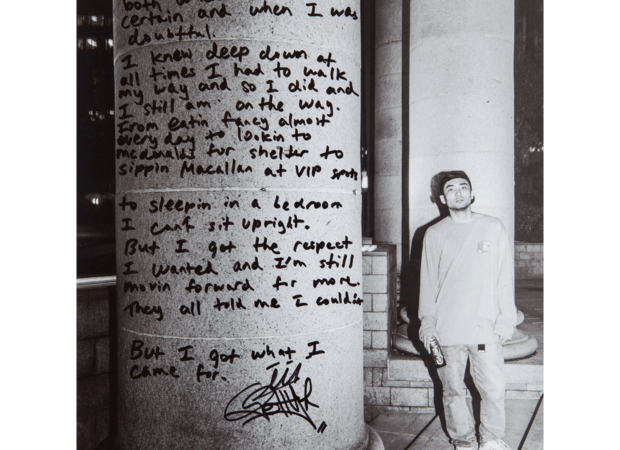 both
certain and when I was
doubtful.
I knew deep down at
all times I had to walk
my way and so I did and
I still am on the way.
From eatin fancy almost
every day to lookin to
mcdonalds for shelter to
sippin Macallan at VIP spots
to sleepin in a bedroom
I can't sit upright.
But I got the respect
I wanted and I'm still
movin forward for more.
They all told me I couldn't
But I got what I
came for.